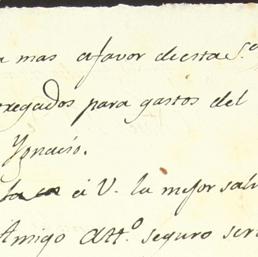 mas afavor deesta S.ª
regados para gastos del
Ygnacio.
a V. la mejor salu
Amigo att.º seguro ser